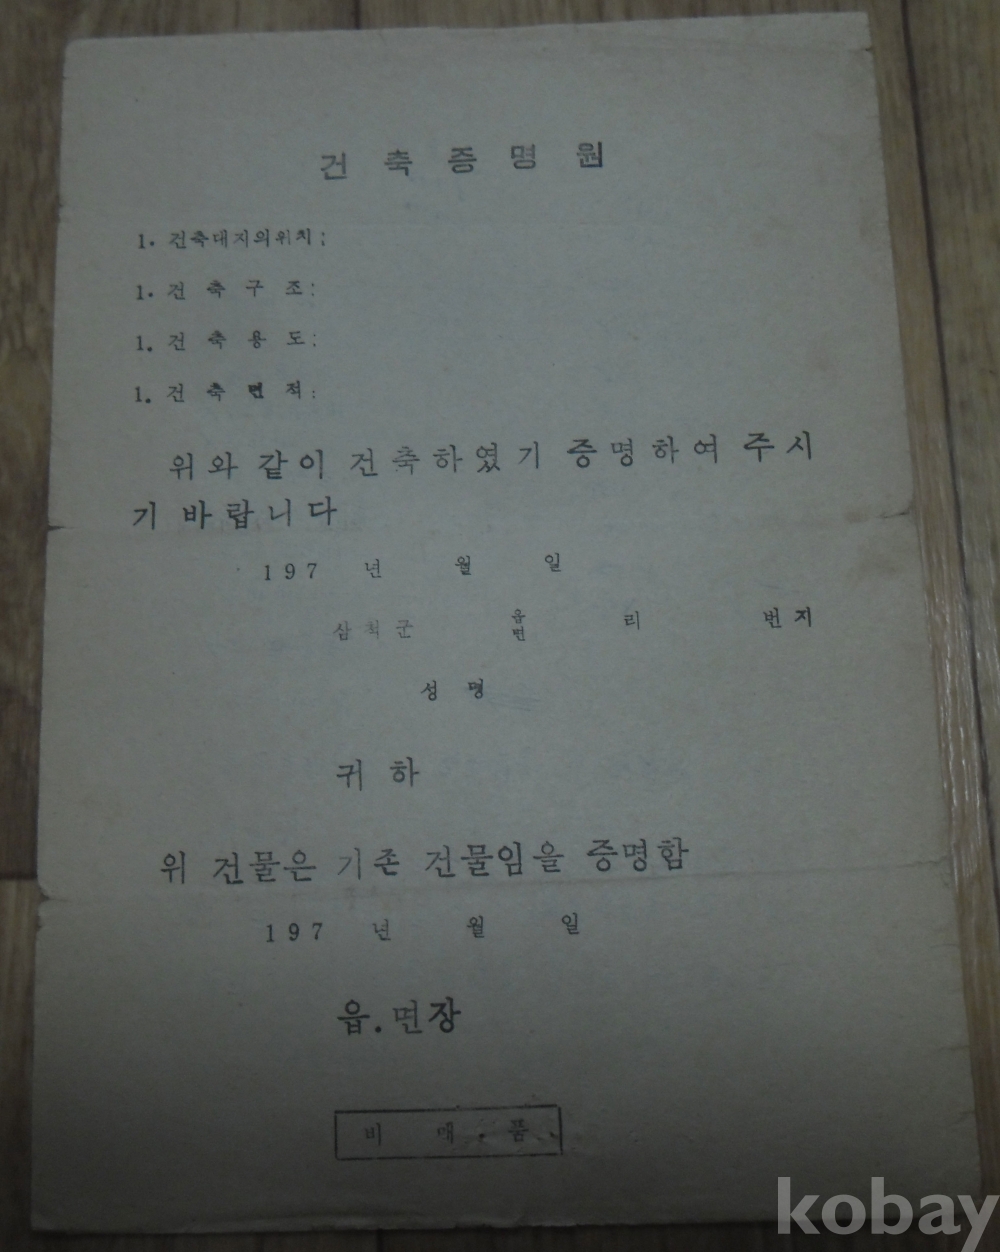 건 축 증 명 원
1. 건축대지의위치:
1. 건 축 구 조:
1. 건 축 용 도:
1. 건 축 면 적:
위와 같이 건축하였기 증명하여 주시
기 바랍니다
197 년 월 일
삼척군 읍면 리 번지
성 명
귀 하
위 건물은 기존 건물임을 증명함
197 년 월 일
읍.면장
비 매 품
kobay